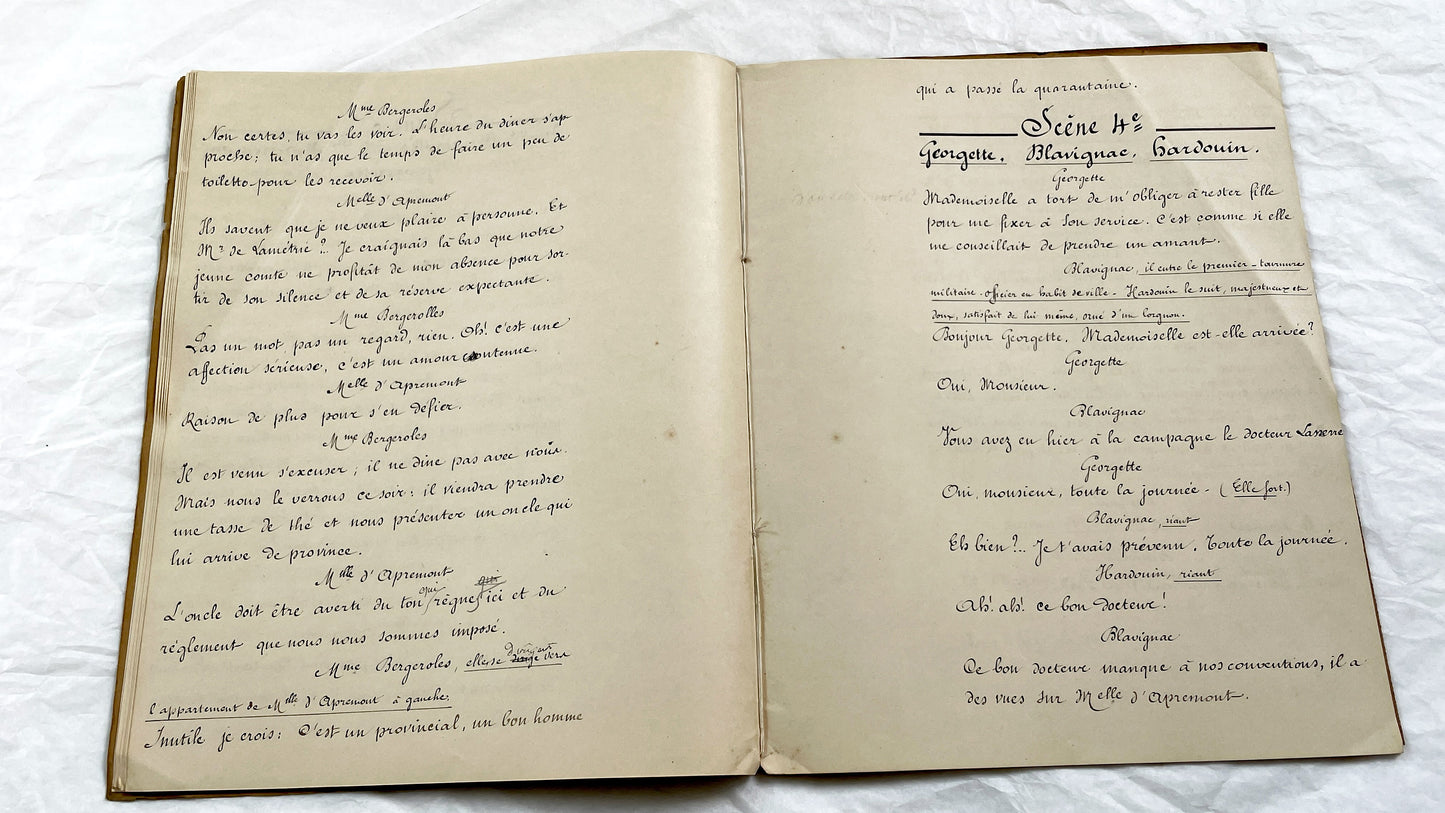 Mme Bergeroles
Non certes, tu vas les voir. L'heure du diner s'ap
proche; tu n'as que le temps de faire un peu de
toilette pour les recevoir.
Melle d'Apremont
Ils savent que je ne veux plaire à personne. Et
Mr de Lamétrie?.. Je craignais là bas que notre
jeune comte ne profitât de mon absence pour sor-
tir de son silence et de sa réserve expectante.
Mme Bergerolles
Pas un mot, pas un regard, rien. Oh! c'est une
affection sérieuse, c'est un amour contenue.
Melle d'Apremont
Raison de plus pour s'en défier.
Mme Bergeroles
Il est venu s'excuser; il ne dine pas avec nous.
Mais nous le verrons ce soir: il viendra prendre
une tasse de thé et nous présenter un oncle qui
lui arrive de province.
Melle d'Apremont
L'oncle doit être averti du ton qui règne ici et du
règlement que nous nous sommes imposé.
Mme Bergeroles, elle se dirigeant vers
l'appartement de Melle d'Apremont à gauche.
Inutile je crois: C'est un provincial, un bon homme
qui a passé la quarantaine.
Scène 4e
Georgette, Blavignac, Hardouin.
Georgette
Mademoiselle a tort de m'obliger à rester fille
pour me fixer à son service. C'est comme si elle
me conseillait de prendre un amant.
Blavignac, il entre le premier - tournure
militaire. officier en habit de ville - Hardouin le suit, majestueux et
doux, satisfait de lui même, orné d'un lorgnon.
Bonjour Georgette. Mademoiselle est-elle arrivée?
Georgette
Oui, Monsieur.
Blavignac
Vous avez eu hier à la campagne le docteur Lasserre
Georgette
Oui, monsieur, toute la journée - (Elle sort.)
Blavignac, riant
Eh bien?.. Je t'avais prévenu. Toute la journée.
Hardouin, riant
Ah! ah! ce bon docteur!
Blavignac
Ce bon docteur manque à nos conventions, il a
des vues sur Melle d'Apremont.